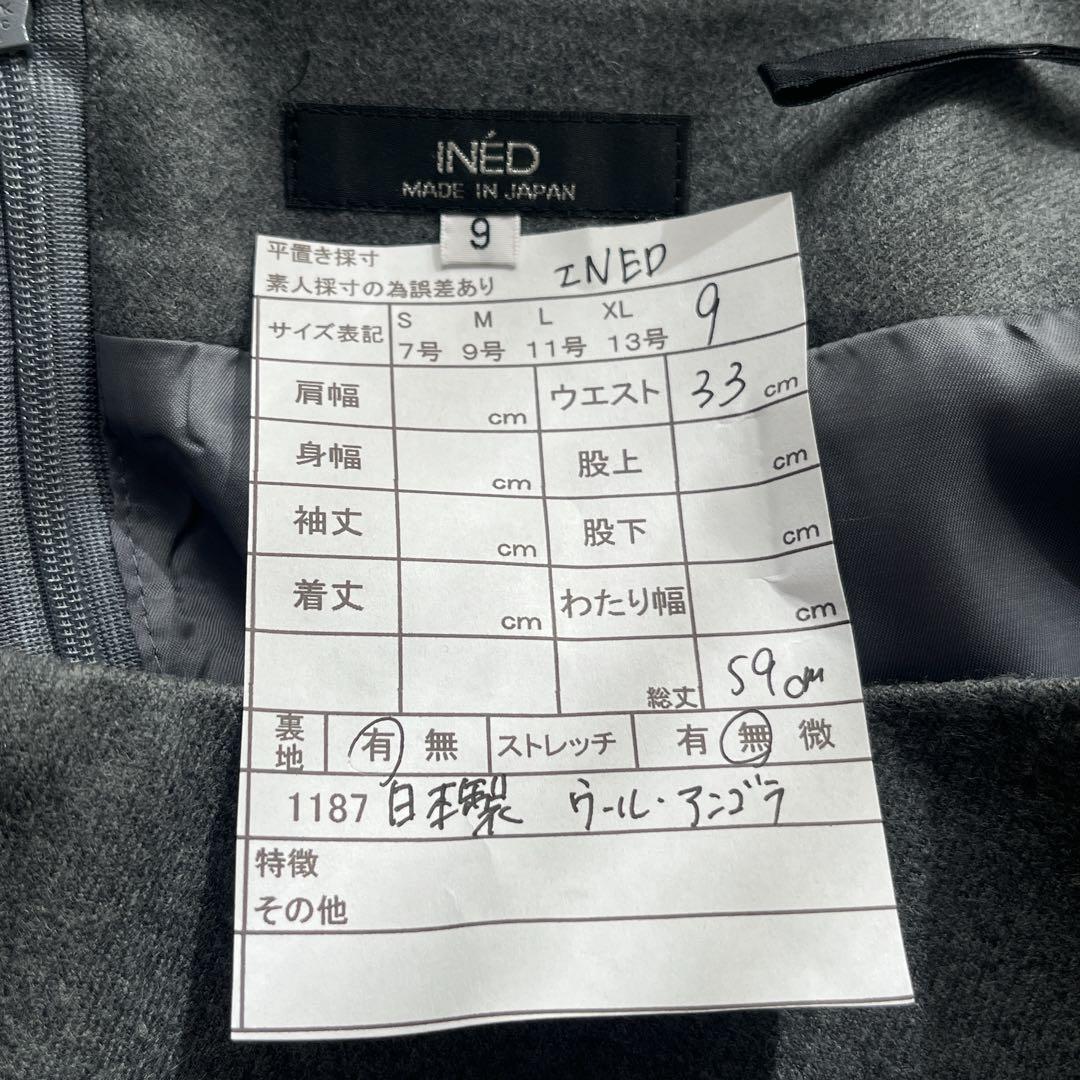 INÉD
MADE IN JAPAN
9
平置き採寸
素人採寸の為誤差あり INED
サイズ表記 S M L XL 9
7号 9号 11号 13号
肩幅 cm ウエスト 33 cm
身幅 cm 股上 cm
袖丈 cm 股下 cm
着丈 cm わたり幅 cm
総丈 59cm
裏地 有 無 ストレッチ 有 無 微
1187 日本製 ウール・アンゴラ
特徴
その他